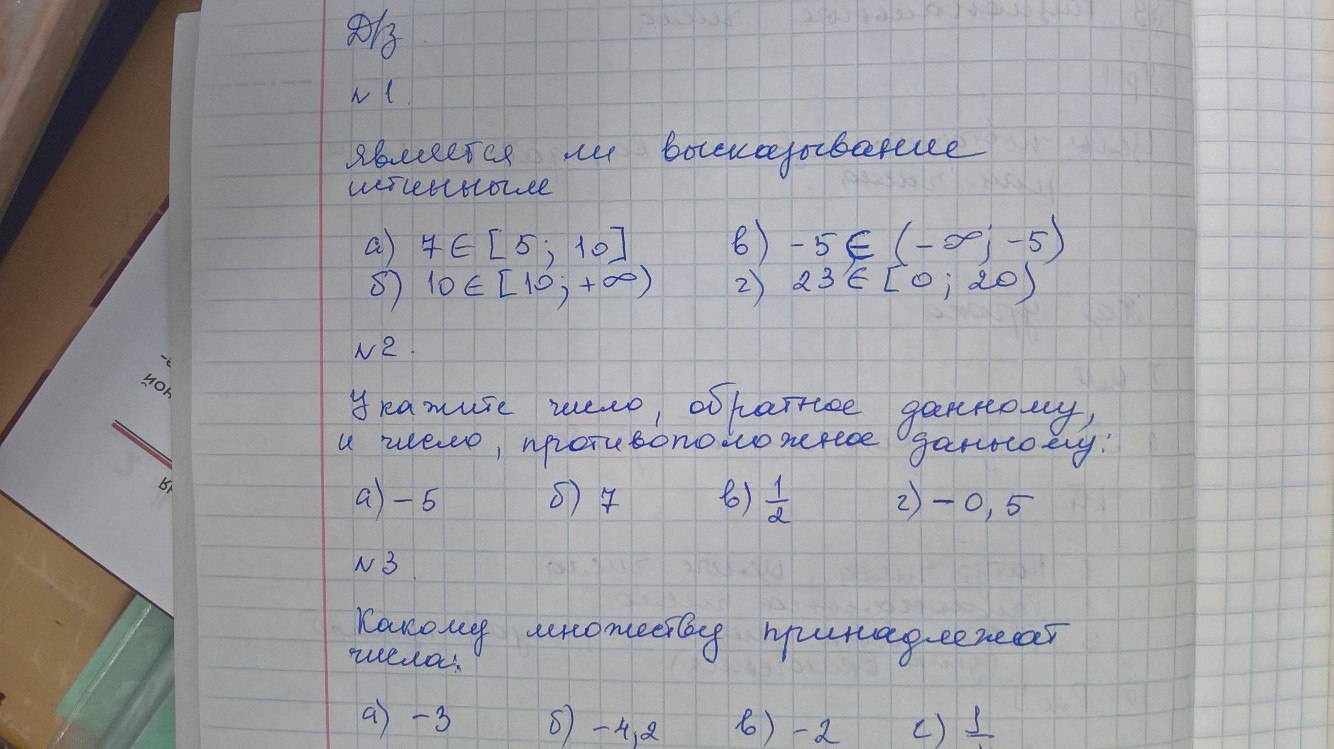 Д/з.
№ 1.
является ли высказывание
истинным
а) 7 ∈ [5; 10]     в) -5 ∈ (-∞; -5)
б) 10 ∈ [10; +∞)     г) 23 ∈ [0; 20)
№ 2.
Укажите число, обратное данному,
и число, противоположное данному:
а) -5     б) 7     в) 1/2     г) -0,5
№ 3
Какому множеству принадлежат
числа:
а) -3     б) -4,2     в) -2     с)